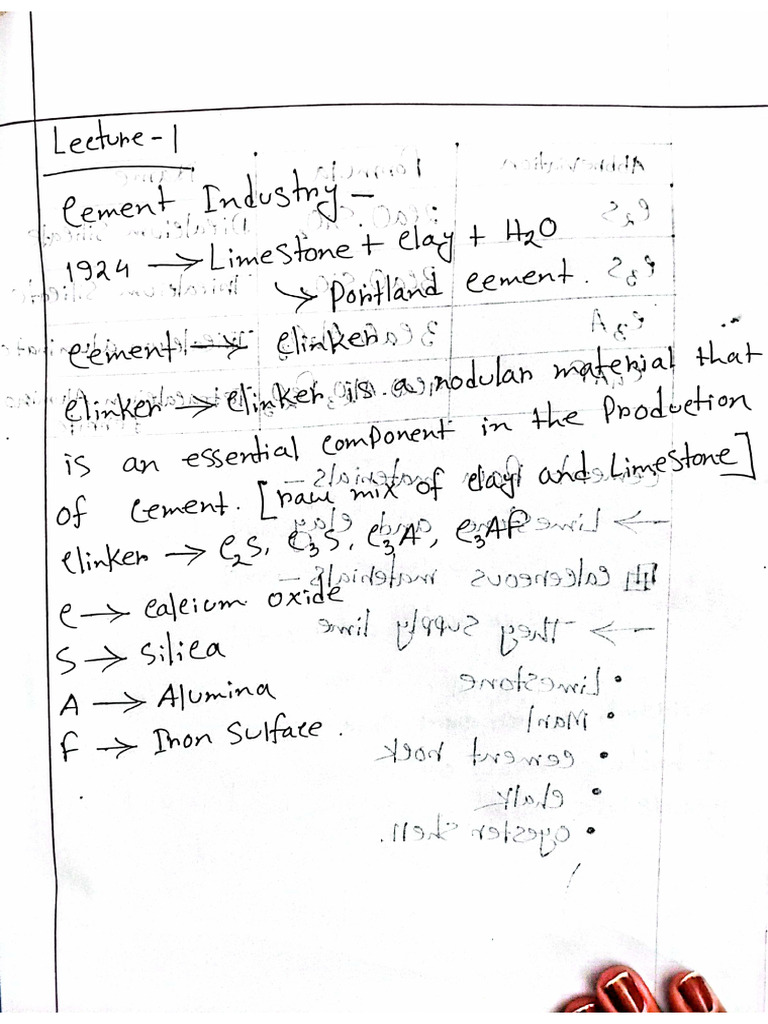 Lecture-1
Cement Industry –
1924 → Limestone + clay + H₂O
↳ Portland cement.
Cement → Clinker
Clinker → Clinker is a nodular material that
is an essential component in the production
of cement. [raw mix of clay and Limestone]
Clinker → C₂S, C₃S, C₃A, C₃AF
C → Calcium oxide
S → Silica
A → Alumina
F → Iron Sulface.